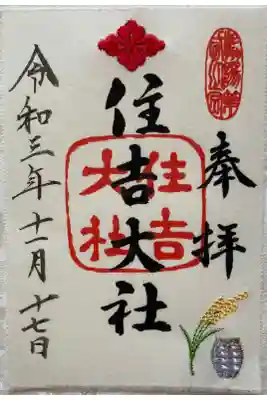 奉拝
住吉大社
住吉
大社
令和三年十一月十七日